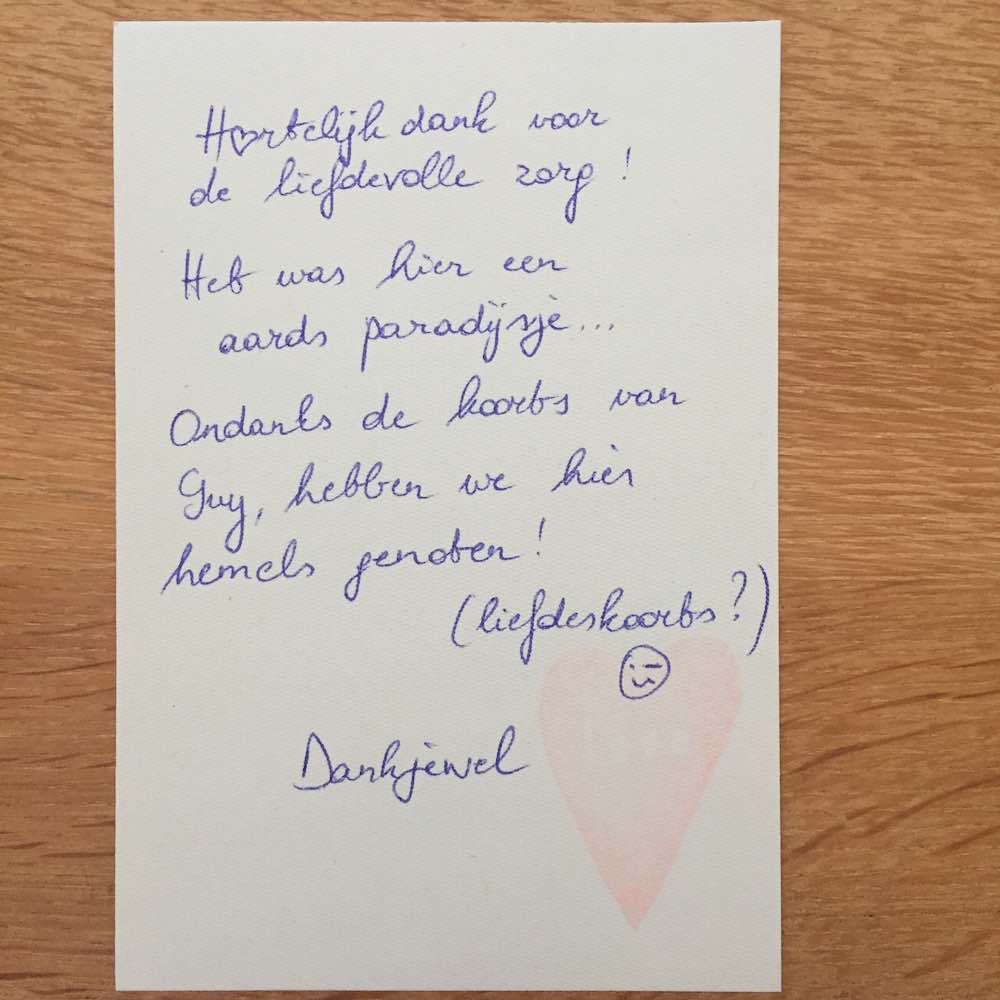 H♡rtelijk dank voor
de liefdevolle zorg!
Het was hier een
aards paradijsje...
Ondanks de koorts van
Guy, hebben we hier
hemels genoten!
(liefdeskoorts?)
Dankjewel